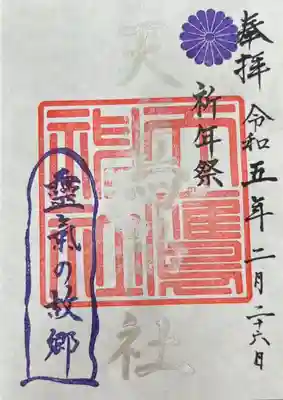 奉拝 令和五年 二月二十六日
祈年祭
天鷹神社
天鷹神社
靈氣の故郷